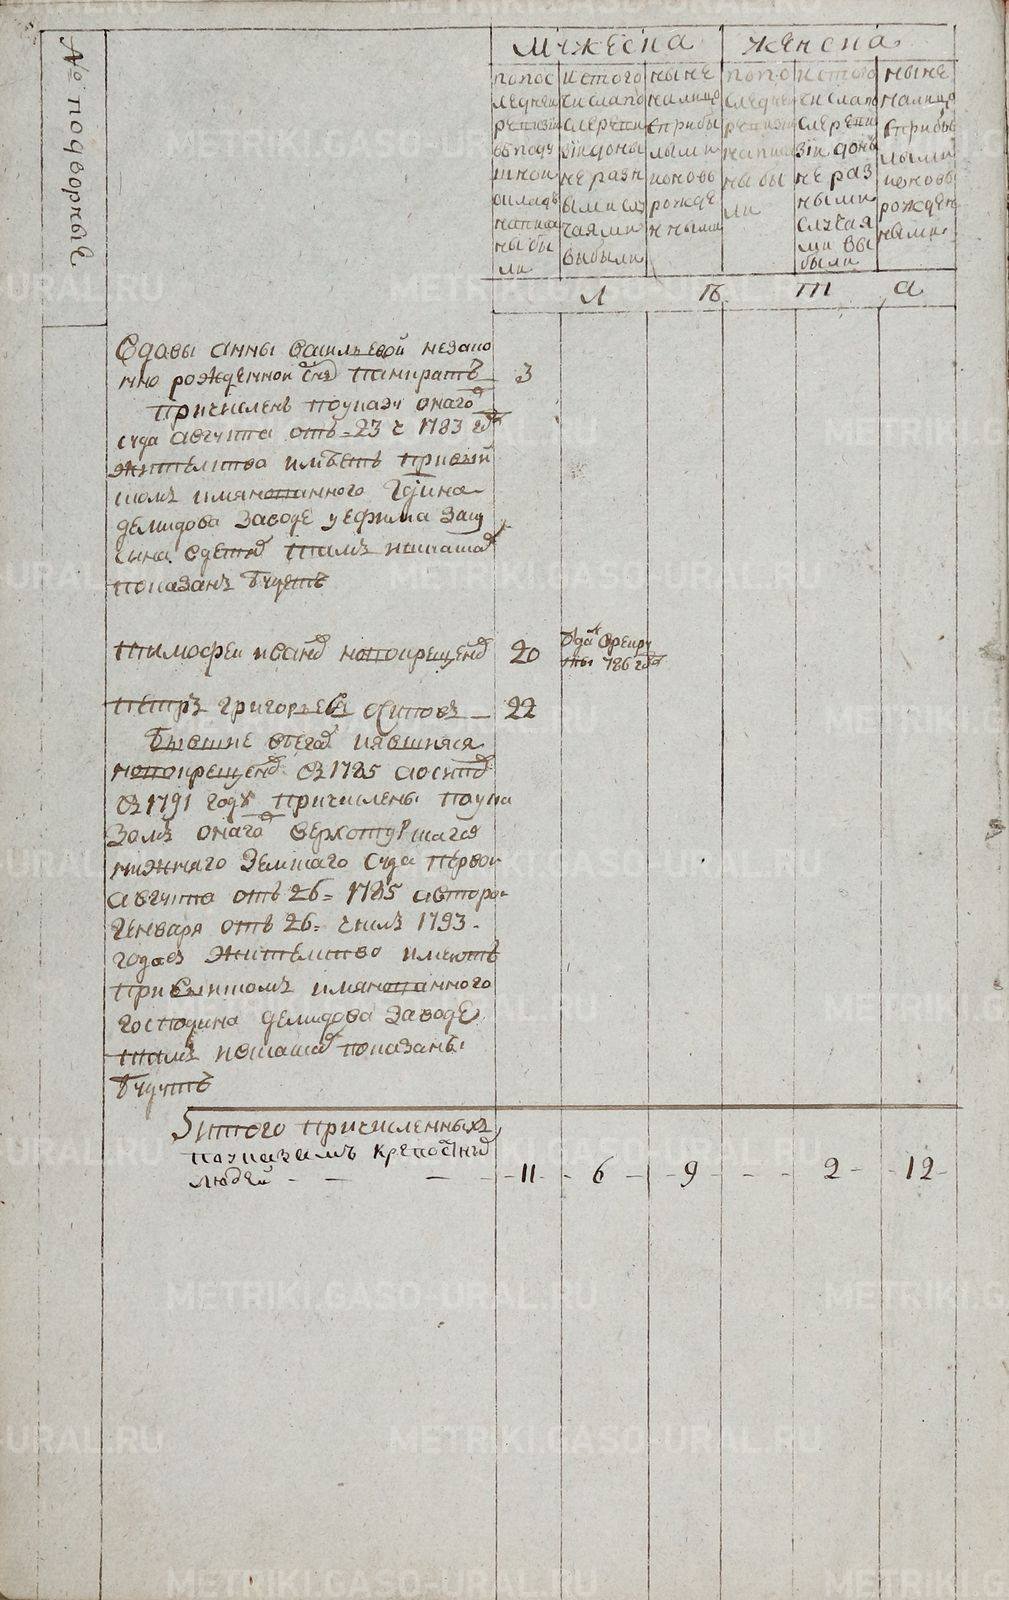 № подворные
Мужеска
Женска
попос
ледней
ревизии
вподу
шной
окладъ
написа
ны бы
ли
истого
числапо
слереви
зии доны
не разн
ыми слу
чаями
выбыли
ныне
налицо
сприбы
лыми
иновь
рожде
нными
попо
следней
ревизии
написа
ны бы
ли
истого
числапо
слереви
зии доны
не раз
ными
случая
ми вы
были
ныне
налицо
сприбы
лыми
иновь
рожден
ными
л ѣ т а
Вдовы анны Васильевой незако
нно рожденной сынъ Панкратъ 3
Причисленъ поуказу онаго
суда августа отъ 23 ч 1783 год
жительство имѣетъ привый
шомъ имянованного Гдина
демидова Заводе у ефима
сына сдетми тамъ инаша
показанъ будетъ
тимофеи иванов новокрещенъ 20 Отдан Врекру
ты 786 год
петръ григорьевъ осиповъ 22
Бывшие вбегах иявшияся
новокрещен въ 1785 аосип
въ 1791 году причислены поука
Зомъ онаго Верхотурскаго
нижнего Земского Суда первой
августа отъ 26 = 1785 авторой
Генваря отъ 26 = числъ 1793
годовъ жительство имеютъ
при вышномъ имянованного
господина демидова Заводе
тамъ показаны
будутъ
итого причисленныхъ
поуказамъ крепостныхъ
людей - - - 11 - 6 - 9 - - - 2 - 12
METRIKI.GASO-URAL.RU